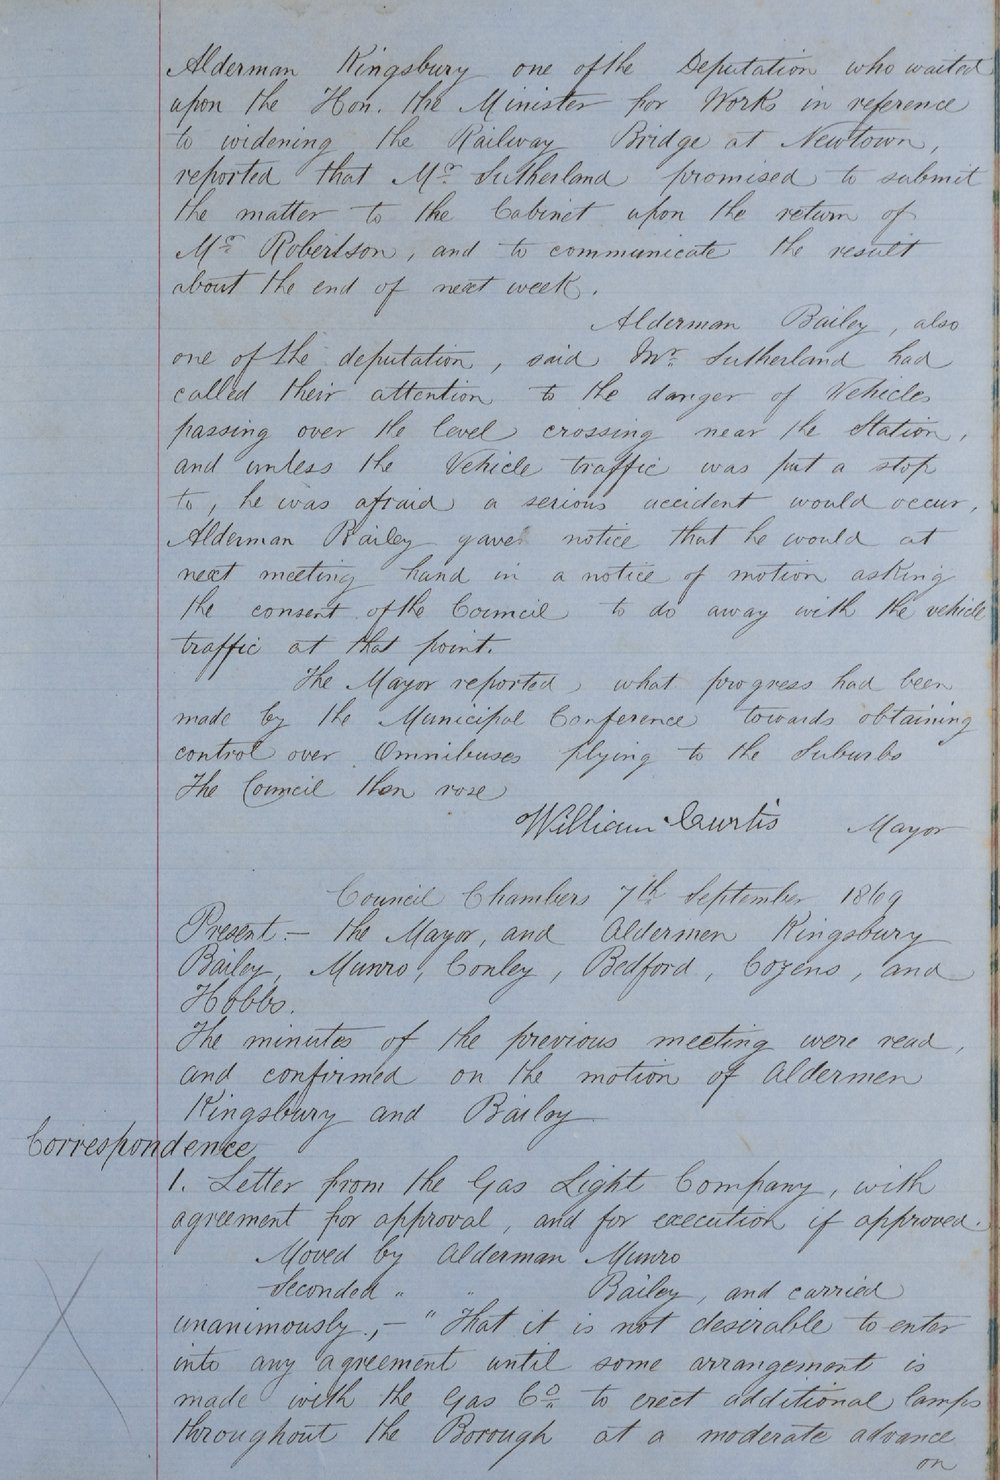 Alderman Kingsbury one of the Deputation who waited
upon the Hon. the Minister for Works in reference
to widening the Railway Bridge at Newtown,
reported that Mr. Sutherland promised to submit
the matter to the Cabinet upon the return of
Mr. Robertson, and to communicate the result
about the end of next week.
Alderman Bailey, also
one of the deputation, said Mr. Sutherland had
called their attention to the danger of Vehicles
passing over the level crossing near the Station,
and unless the Vehicle traffic was put a stop
to, he was afraid a serious accident would occur.
Alderman Bailey gave notice that he would at
next meeting hand in a notice of motion asking
the consent of the Council to do away with the vehicle
traffic at that point.
The Mayor reported, what progress had been
made by the Municipal Conference towards obtaining
control over Omnibuses plying to the Suburbs
The Council then rose
William Curtis Mayor
Council Chambers 7th September 1869
Present:- the Mayor, and Aldermen Kingsbury
Bailey, Munro, Conley, Bedford, Cozens, and
Hobbs.
The minutes of the previous meeting were read,
and confirmed on the motion of Aldermen
Kingsbury and Bailey
Correspondence
1. Letter from the Gas Light Company, with
agreement for approval, and for execution if approved.
Moved by Alderman Munro
Seconded " " Bailey, and carried
unanimously,- "That it is not desirable to enter
into any agreement until some arrangement is
made with the Gas Co. to erect additional lamps
throughout the Borough at a moderate advance
on